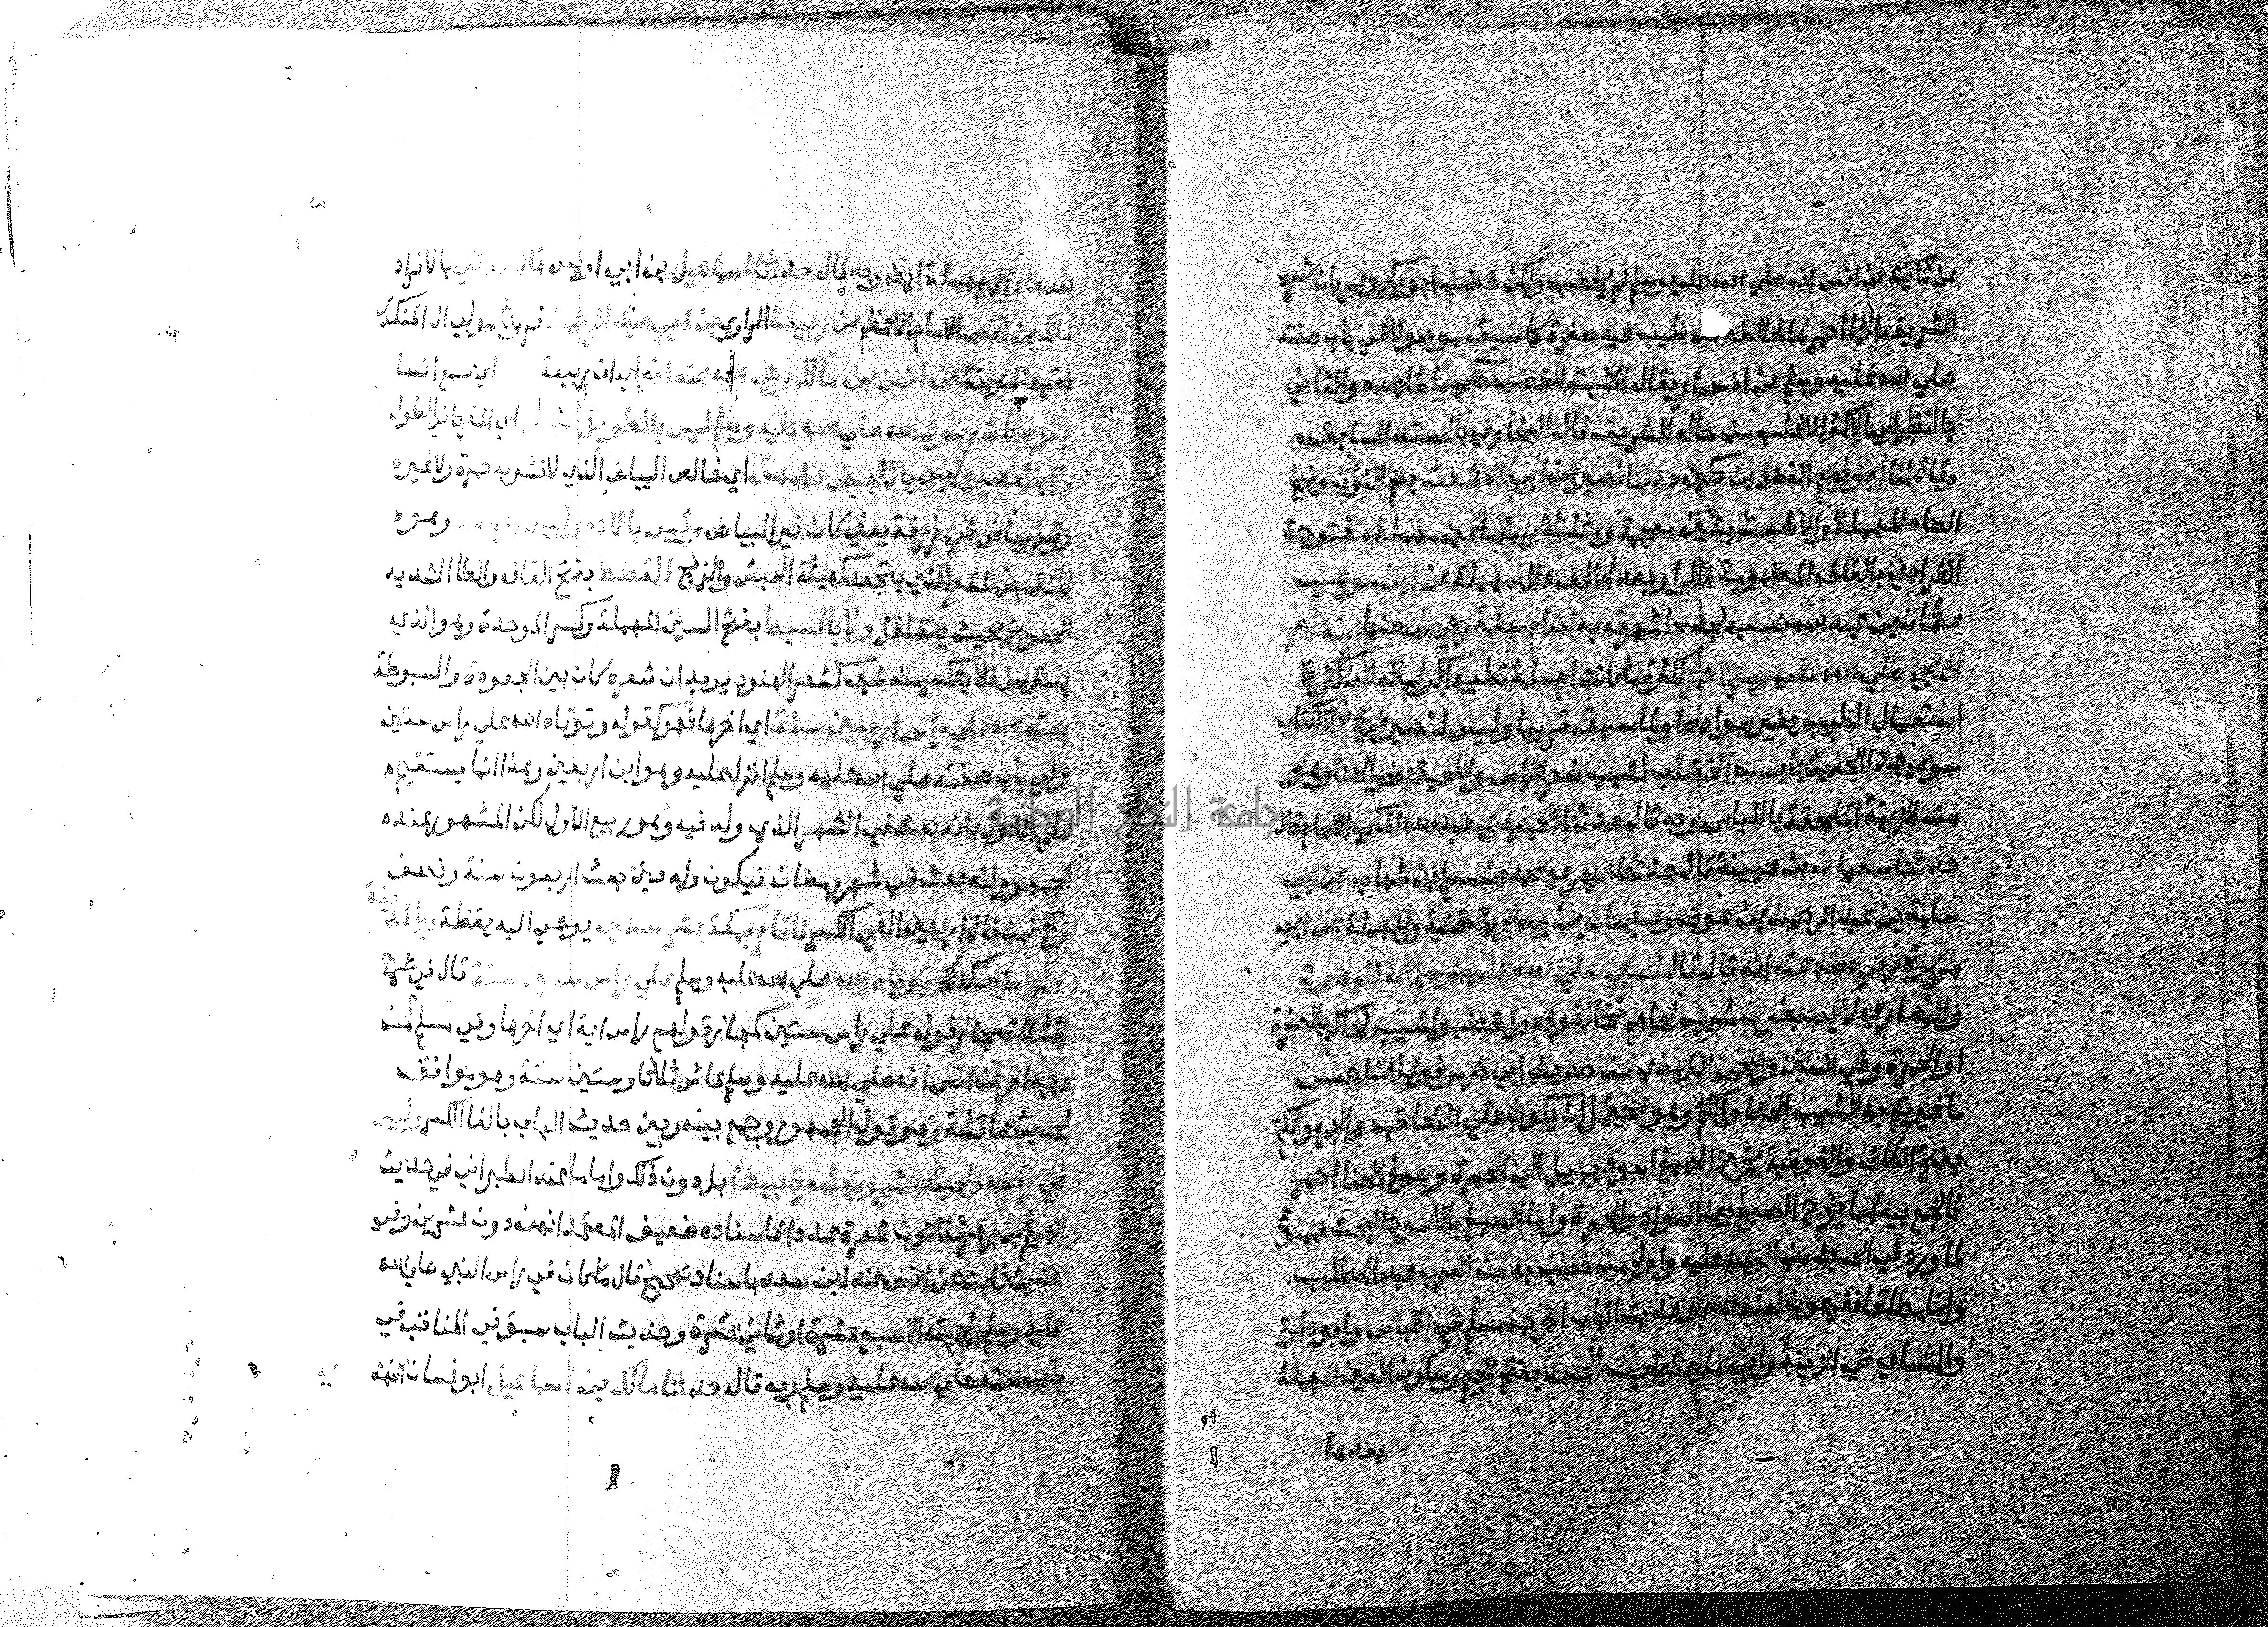 عن ثابت عن انس انه صلي الله عليه وسلم لم يخضب ولكن خضب ابوبكر وعمر بان شعره
الشريف انما احمر لما خالطه من طيب فيه صفرة كما سبق موصولا في باب صفته
صلي الله عليه وسلم عن انس او يقال المثبت للخضب حكي ما شاهده والنافي
بالنظر الي الاكثر الاغلب من حاله الشريف قال البخاري بالسند السابق
وقال لنا ابو نعيم الفضل بن دكين حدثنا نصير بن ابي الاشعث بضم النون وفتح
الصاد المهملة والاشعث بشين معجمة ومثلثة بينهما عين مهملة مفتوحة
القرادي بالقاف المضمومة فالراء وبعد الالف دال مهملة عن ابن موهب
عثمان بن عبد الله نسبه لجده لشهرته به ان ام سلمة رضي الله عنها ارته شعر
النبي صلي الله عليه وسلم احمر لكثرة ما كانت ام سلمة تطيبه اكراما له لان كثرة
استعمال الطيب يغير سواده او لما سبق قريبا وليس لنصير في هذا الكتاب
سوي هذا الحديث باب الخضاب لشيب شعر الراس واللحية بنحو الحنا وهو
من الزينة الملحقة باللباس وبه قال حدثنا الحميدي عبد الله المكي الامام قال
حدثنا سفيان بن عيينة قال حدثنا الزهري محمد بن مسلم بن شهاب عن ابي
سلمة بن عبد الرحمن بن عوف وسليمان بن يسار بالتحتية والمهملة عن ابي
هريرة رضي الله عنه انه قال قال النبي صلي الله عليه وسلم ان اليهود
والنصاري لا يصبغون شيب لحاهم فخالفوهم واخضبوا شيب لحاكم بالصفرة
او الحمرة وفي السنن وصححه الترمذي من حديث ابي ذر مرفوعا ان احسن
ما غيرتم به الشيب الحنا والكتم وهو يحتمل ان يكون علي التعاقب والجمع والكتم
بفتح الكاف والفوقية يخرج الصبغ اسود يميل الي الحمرة وصبغ الحنا احمر
فالجمع بينهما يخرج الصبغ بين السواد والحمرة واما الصبغ بالاسود البحت فممنوع
لما ورد في الحديث من الوعيد عليه واول من خضب به من العرب عبد المطلب
واما مطلقا ففرعون لعنه الله وحديث الباب اخرجه مسلم في اللباس وابو داود
والنساي في الزينة وابن ماجة باب الجعد بفتح الجيم وسكون العين المهملة
بعدها
بعدها دال مهملة ايضا وبه قال حدثنا اسماعيل بن ابي اويس قال حدثني بالافراد
مالك بن انس الامام الاعظم عن ربيعة الراي بن ابي عبد الرحمن مولي ال المنكدر
فقيه المدينة عن انس بن مالك رضي الله عنه انه اي ان ربيعة اي سمع انسا
يقول كان رسول الله صلي الله عليه وسلم ليس بالطويل اي المفرط في الطول
ولا بالقصير وليس بالابيض الامهق اي خالص البياض الذي لا تشوبه حمرة ولا غيره
وقيل بياض في زرقة يعني كان نير البياض وليس بالادم وليس بالجعد وهو
المنقبض الشعر الذي يتجعد كهيئة الحبش والزنج القطط بفتح القاف والطا الشديد
الجعودة بحيث يتفلفل ولا بالسبط بفتح السين المهملة وكسر الموحدة وهو الذي
يسترسل فلا يتكسر منه شي كشعر الهنود يريد ان شعره كان بين الجعودة والسبوطة
بعثه الله علي راس اربعين سنة اي اخرها فهو كقوله وتوفاه الله علي راس ستين
وفي باب صفته صلي الله عليه وسلم انزل عليه وهو ابن اربعين وهذا انما يستقيم
علي القول بانه بعث في الشهر الذي ولد فيه وهو ربيع الاول لكن المشهور عند
الجمهور انه بعث في شهر رمضان فيكون له حين بعث اربعون سنة ونصف
وح فمن قال اربعين الغي الكسر فاقام بمكة عشر سنين يوحي اليه يقظة وبالمدينة
عشر سنين كذلك وتوفاه الله صلي الله عليه وسلم علي راس ستين سنة قال في شرح
المشكاة مجاز قوله علي راس ستين كمجاز قولهم راس اية اي اخرها وفي مسلم من
وجه اخر عن انس انه صلي الله عليه وسلم عاش ثلاثا وستين سنة وهو موافق
لحديث عائشة وهو قول الجمهور وجمع بينه وبين حديث الباب بالغا الكسر وليس
في راسه ولحيته عشرون شعرة بيضا بل دون ذلك واما ما عند الطبراني في حديث
الهيثم بن زهر ثلاثون شعرة عددا فاسناده ضعيف المعتمد انهن دون عشرين وفي
حديث ثابت عن انس عند ابن سعد باسناد صحيح قال ما كان في راس النبي صلي الله
عليه وسلم ولحيته الا سبع عشرة او ثمان عشرة وحديث الباب سبق في المناقب في
باب صفته صلي الله عليه وسلم وبه قال حدثنا مالك بن اسماعيل ابو غسان النهد
جامعة النجاح الوطنية